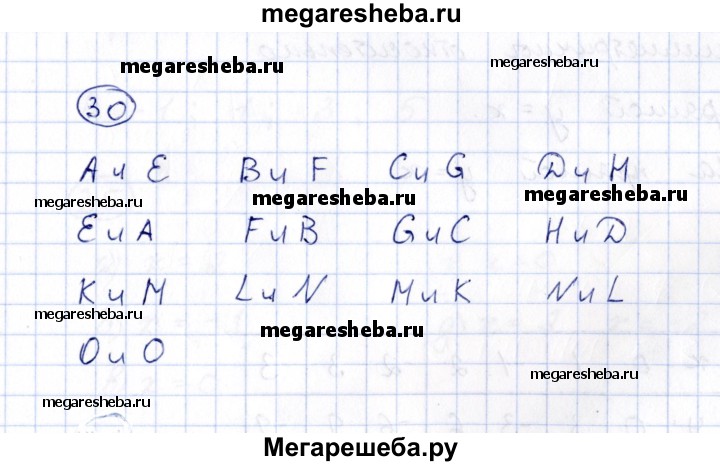 megaresheba.ru
megaresheba.ru megaresheba.ru
30
А и Е В и F С и G D и H
megaresheba.ru megaresheba.ru megaresheba.ru
Е и А F и В G и С H и D
К и М L и N М и К N и L
megaresheba.ru megaresheba.ru
О и О
megaresheba.ru megaresheba.ru
Мегарешеба.ру